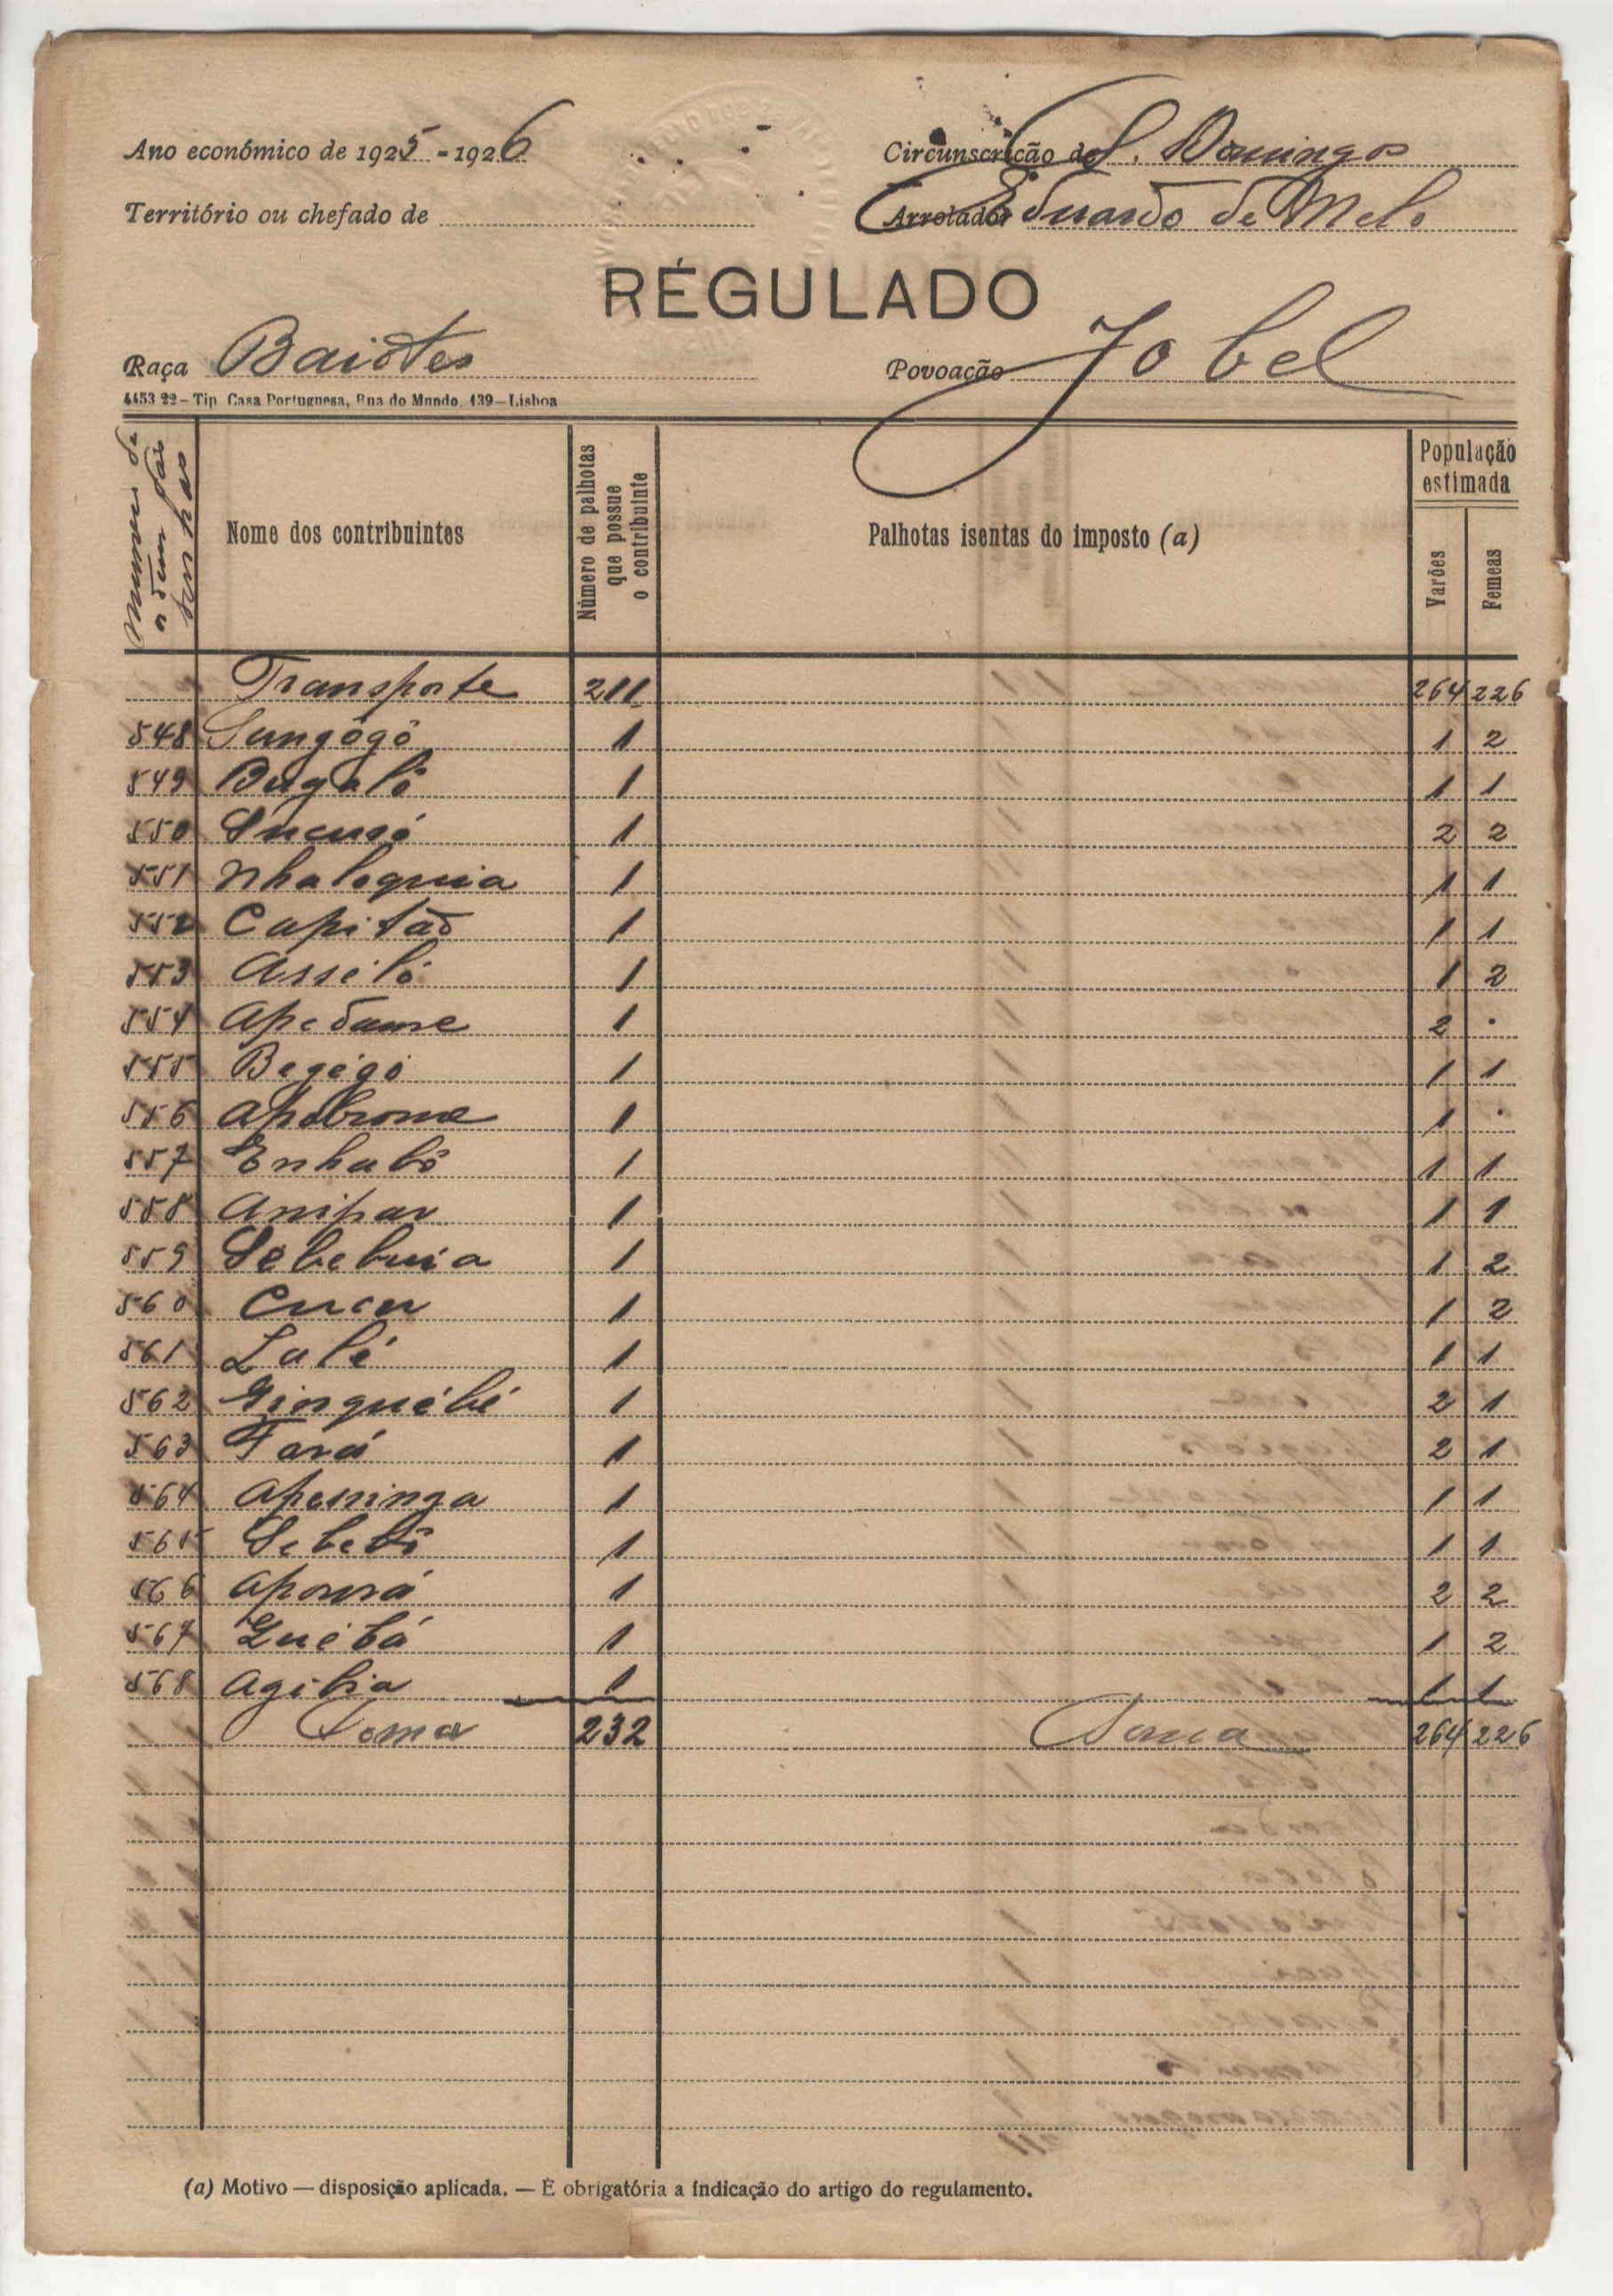 Ano económico de 1925-1926
Circunscrição de S. Domingos
Território ou chefado de
Arrolador Eduardo de Melo
RÉGULADO
Raça Baiotes
Povoação Jobel
4453 22 — Tip. Casa Portuguesa, Rua do Mundo, 139—Lisboa
Numero de
Nome dos contribuintes
Número de palhotas que possue o contribuinte
Palhotas isentas do imposto (a)
População estimada
Varões
Femeas
Transporte 211 264 226
548 Sungôgô 1 1 2
549 Bugalô 1 1 1
550 1 2 2
551 Nhalequia 1 1 1
552 Capitão 1 1 1
553 Assilô 1 1 2
554 Apedame 1 2 .
555 Begégó 1 1 1
556 Apabrome 1 1 .
557 Enhabô 1 1 1
558 Anipav 1 1 1
559 Sebebuia 1 1 2
560 Cucu 1 1 2
561 Lalé 1 1 1
562 Ginguébé 1 2 1
563 Fará 1 2 1
564 Apeninga 1 1 1
565 Sebebô 1 1 1
566 1 2 2
567 Guebá 1 1 2
568 Agibia 1 1 1
Soma 232 Soma 264 226
(a) Motivo — disposição aplicada. — É obrigatória a indicação do artigo do regulamento.